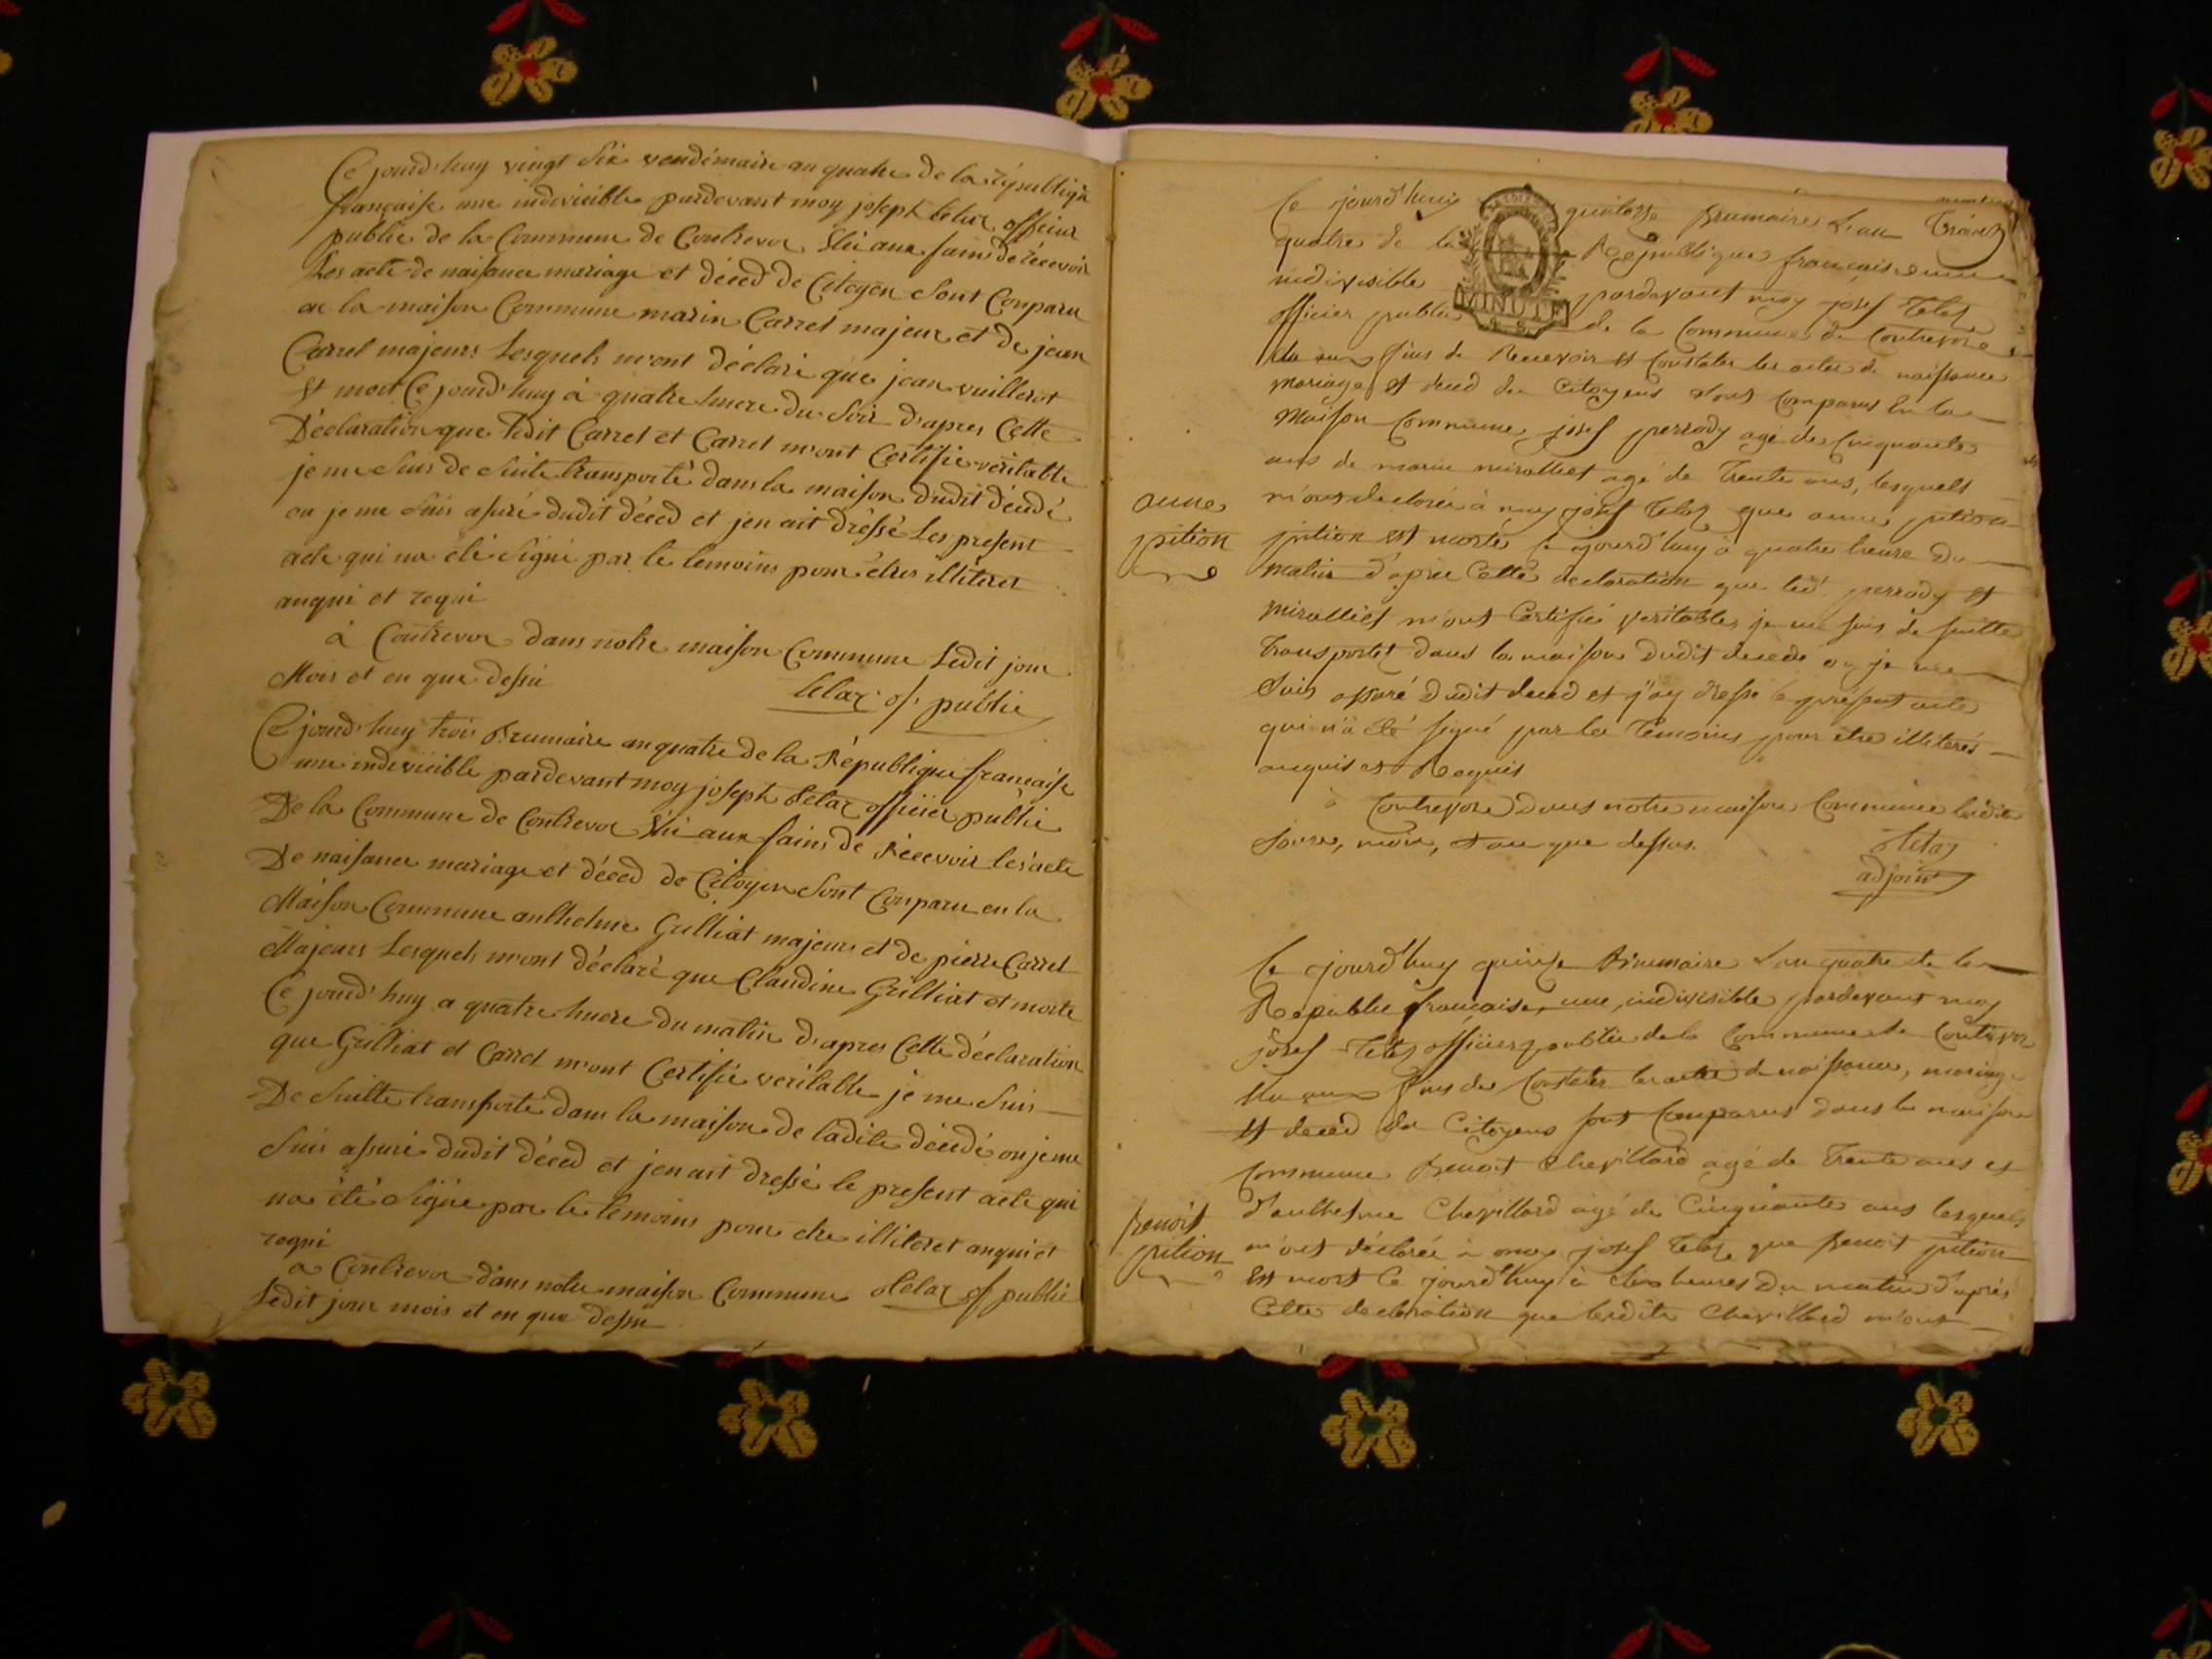 Ce jourd'huy vingt six vendémaire an quatre de la républiqu
française une indivicible pardevant moy joseph telaz officier
public de la Commune de Contrevoz élú aux fains de récevoir
Les acte de naisance mariage et déced de Citoyen Sont Conparu
en la maison Commune marin Carrel majeur et de jean
Carrel majeurs Lesquels m'ont déclaré que jean vuillerot
et mort Ce jourd'huy à quatre huere du Soir d'apres Cette
Déclaration que ledit Carrel et Carrel m'ont Certifié véritable
je me Suis de Suite transporté dans la maison dudit décédé
ou je me Suis assuré dudit déced et jen ait dréssé Les present
acte qui na été Signé par le temoins pour étres illiteret
anqui et requi
à Contrevoz dans notre maison Commune Ledit jour
Mois et en que dessu
telaz of. public
Ce jourd'huy trois Brumaire an quatre de la République française
une indevicible pardevant moy joseph telaz officiér public
De la Commune de Contrevoz élú aux fains de Récevoir les acte
De naisance mariage et déced de Citoyen Sont Conparu en la
Maison Commune anthelme Gulliat majeurs et de pierre Carrel
Majeurs Lesquels m'ont déclaré que Claudine Gulliat et morte
Ce jourd'huy a quatre huere du matin d'apres Cette déclaration
que Gulliat et Carrel m'ont Certifié veritable je me Suis
De Suitte transporté dans la maison de ladite décédé ou je me
Suis assuré dudit déced et jen ait dressé le present acte qui
na été Signe par le temoins pour etre illiteret anqui et
requi
a Contrevoz dans notre maison Commune telaz of public
Ledit jour mois et en que dessu
Ce jourd'huy quatorze Brumaire L'an
quatre de la République française une
indivisible pardevant moy josef Telaz
officier public de la Commune de Contrevoz
MINUTE
élu aux fins de Recevoir et Constater les actes de naissance
mariage et déced des Citoyens Sont Comparus En la
Maison Commune josef perrody agé de Cinquante
ans de marin miralliet agé de Trente ans, lesquels
m'ont declarée à moy josef Telaz que anne pition
anne
pition
pition est morte ce jourd'huy à quatre heure Du
matin d'apres Cette declaration que led. perrody et
miralliet m'ont Certifié veritable, je me suis de suitte
Transportet dans la maison Dudit decede ou je me
Suis assuré Dudit déced et j'ay dressé le présent acte
qui n'a été signé par les Temoins pour être illiterés
anquis et Requis
à Contrevoz Dans notre maison Commune ledits
Jours, mois, et an que dessus.
Telaz
adjoint
Ce jourd'huy quinze Brumaire L'an quatre de la
Republic française, une, indivisible pardevant moy
josef Telaz officier public de la Commune de Contrevoz
élu aux fins de Constater les actes de naissance, mariage
et déced des Citoyens sont Comparus dans la maison
Commune Benoit Chevillard agé de Trente ans et
d'anthelme Chevillard agé de Cinquante ans lesquels
benoit
pition
m'ont déclarée à moy josef Telaz que benoit pition
est mort ce jourd'huy à heures Du matin d'après
Cette declaration que ledits Chevillard m'ont